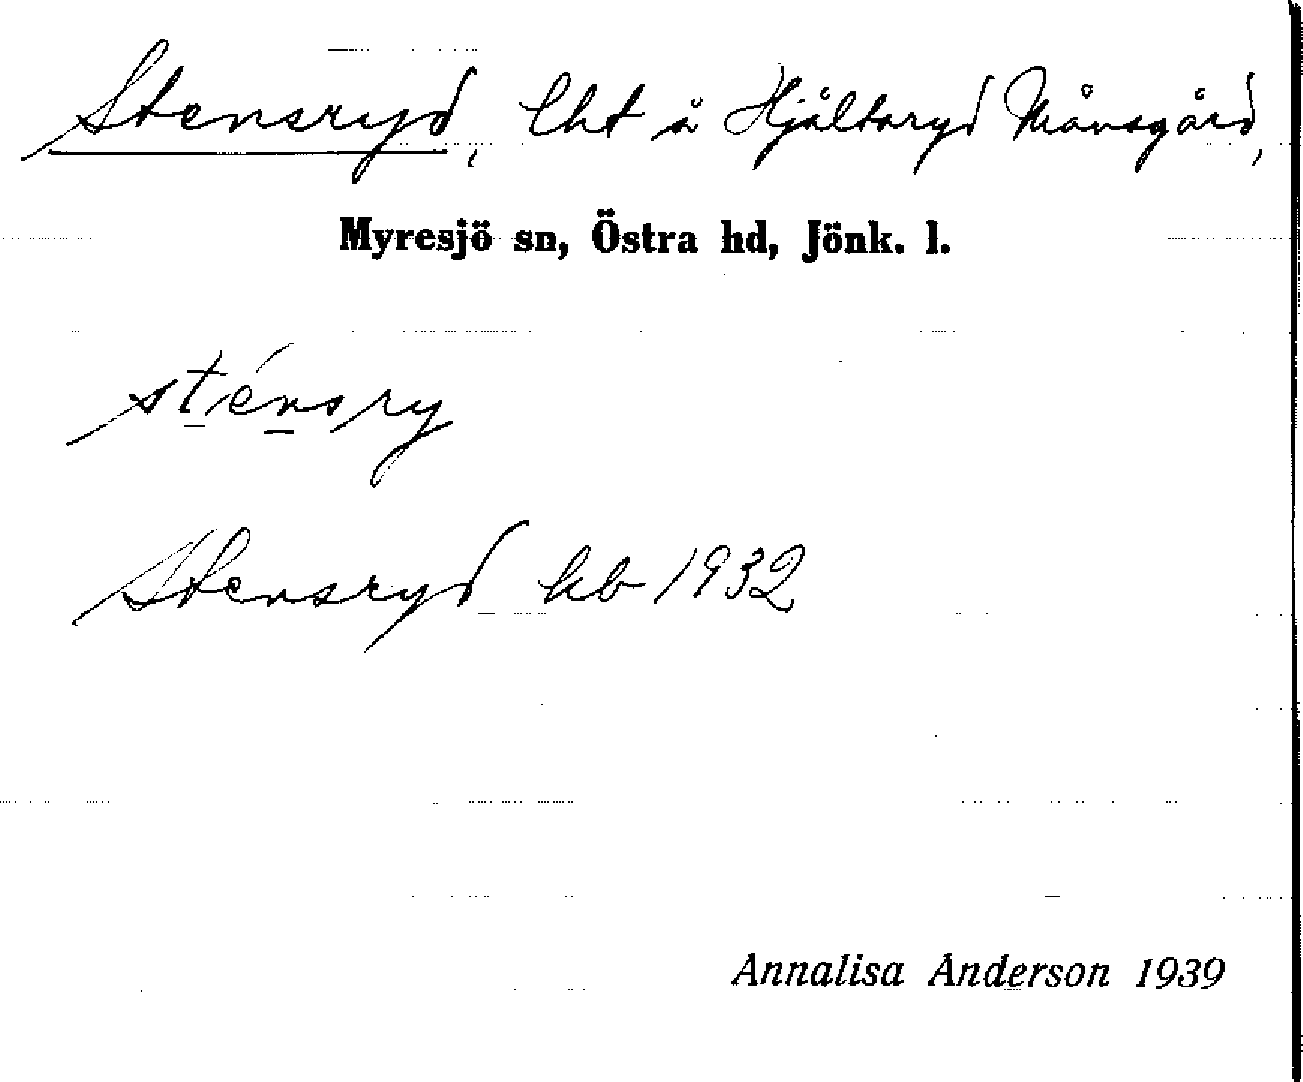 Stensryd, lht å Hjältaryd Månsgård,
Myresjö sn, Östra hd, Jönk. l.
sténsry
Stensryd kb 1932
Annalisa Anderson 1939